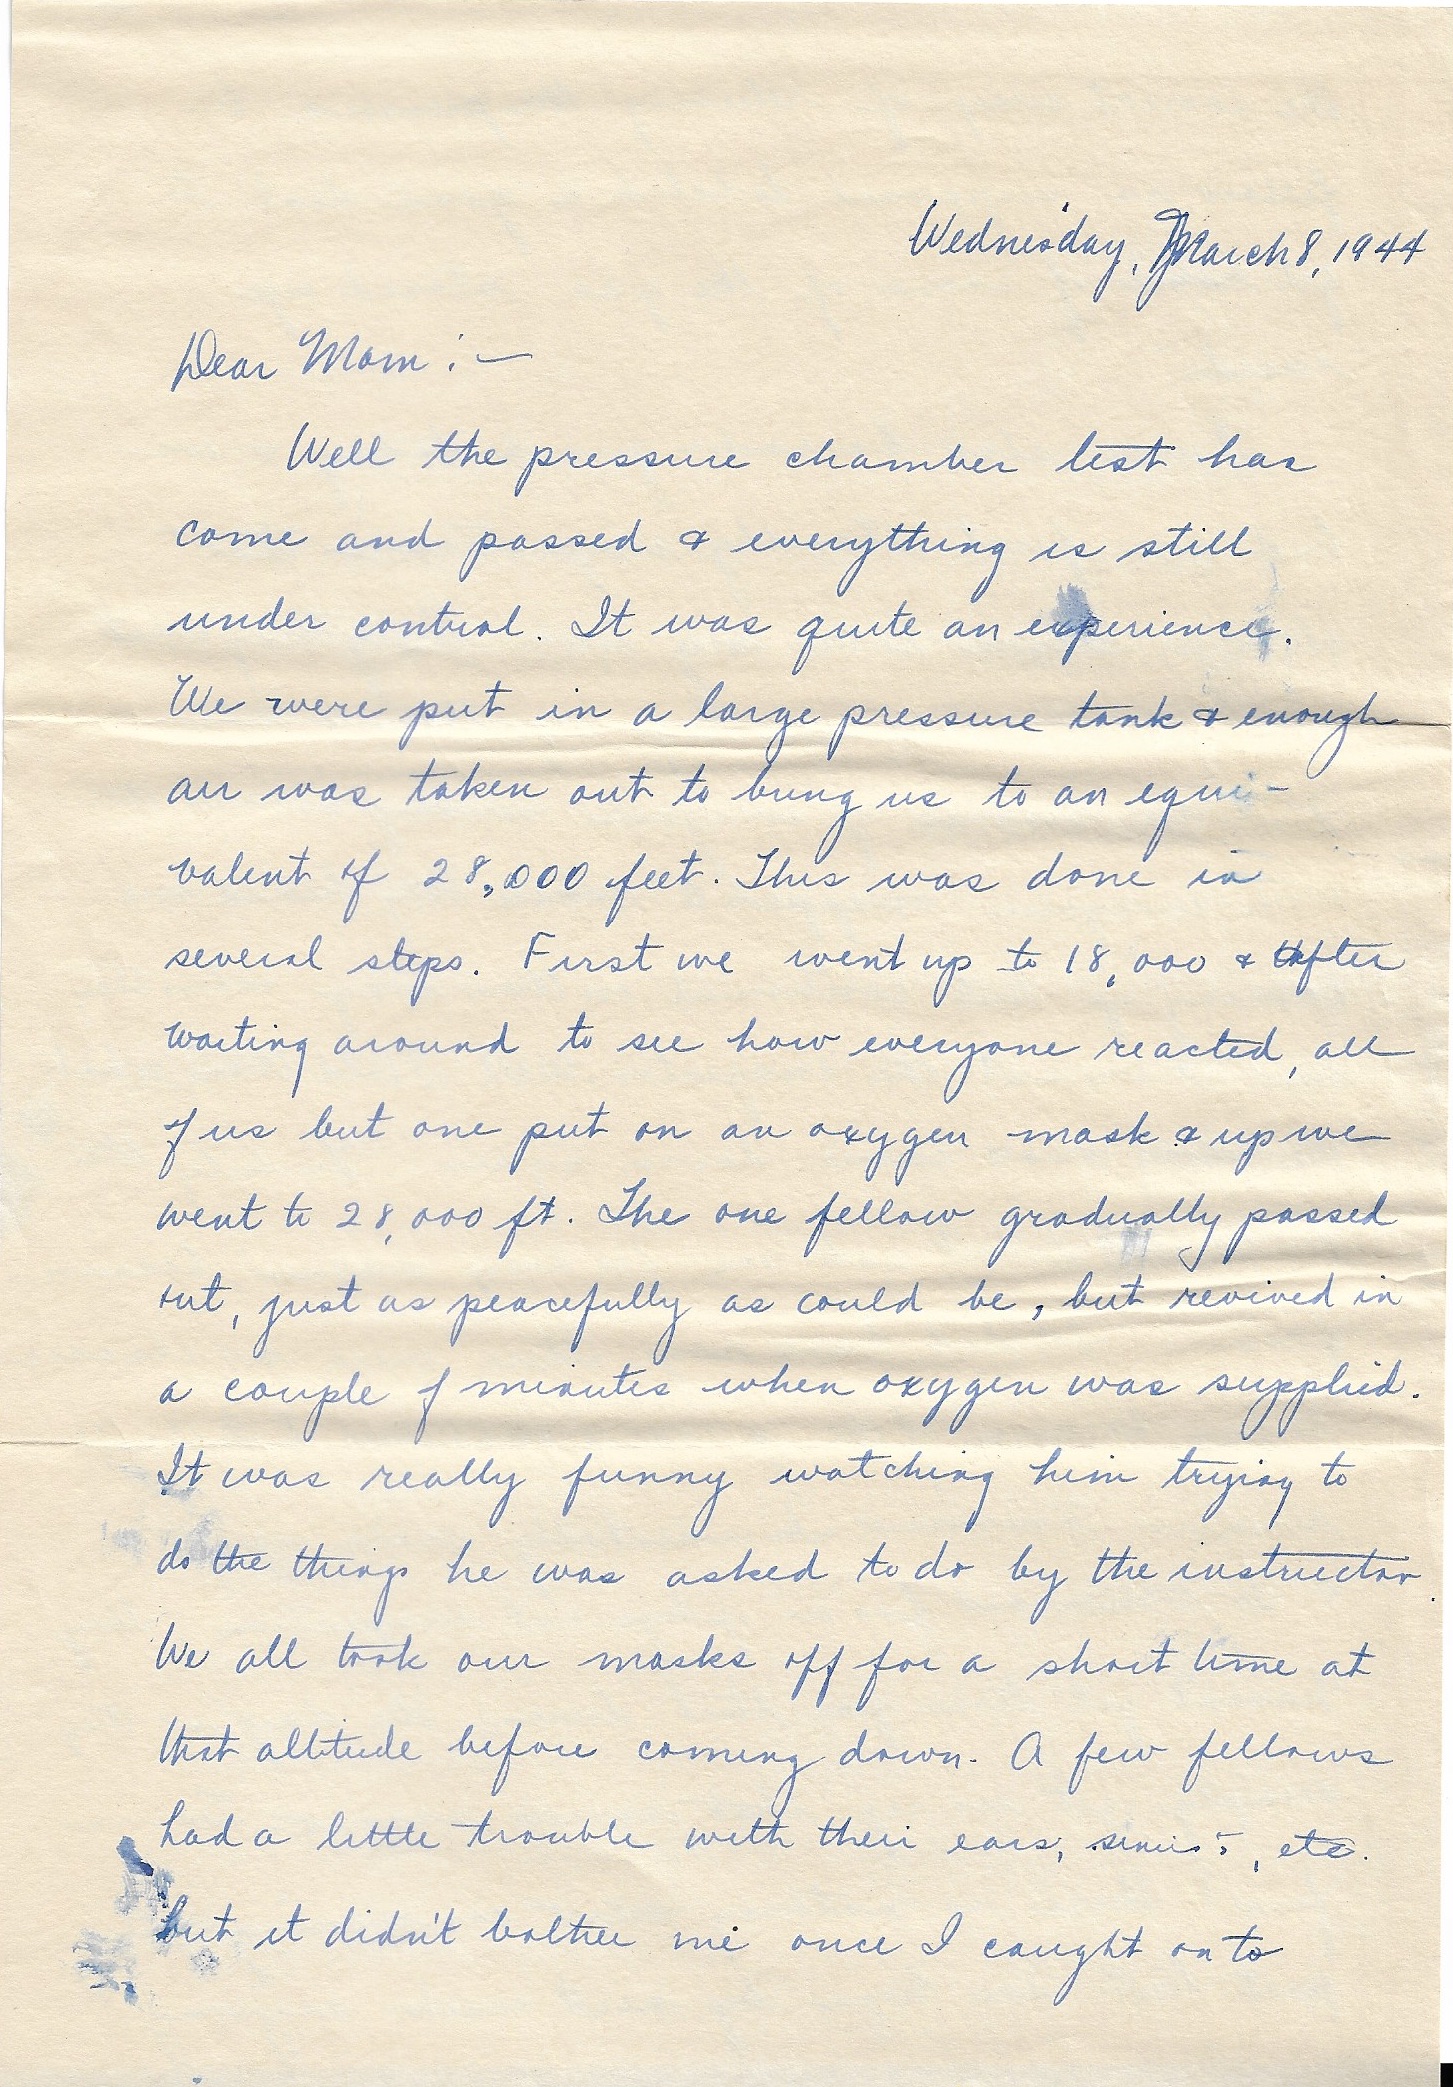 Wednesday, March 8, 1944
Dear Mom :—
Well the pressure chamber test has
come and passed & everything is still
under control. It was quite an experience.
We were put in a large pressure tank & enough
air was taken out to bring us to an equi-
valent of 28,000 feet. This was done in
several steps. First we went up to 18,000 & after
waiting around to see how everyone reacted, all
of us but one put on an oxygen mask & up we
went to 28,000 ft. The one fellow gradually passed
out, just as peacefully as could be, but revived in
a couple of minutes when oxygen was supplied.
It was really funny watching him trying to
do the things he was asked to do by the instructor.
We all took our masks off for a short time at
that altitude before coming down. A few fellows
had a little trouble with their ears, sinus, etc.
but it didn't bother me once I caught on to